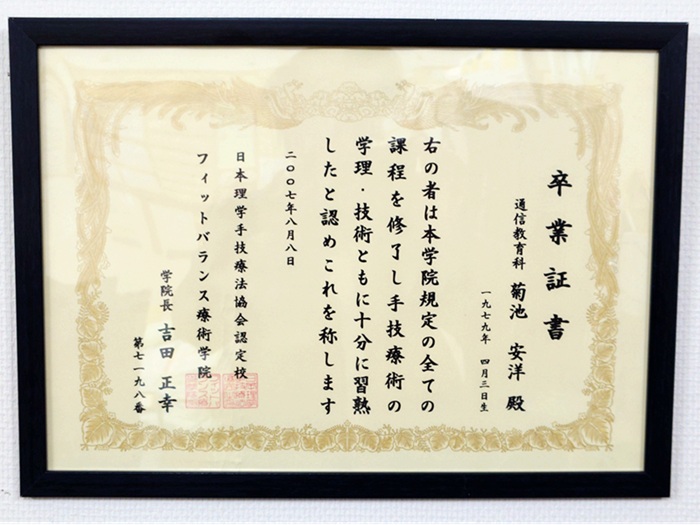 卒業証書
通信教育科 菊池 安洋 殿
一九七九年 四月三日生
右の者は本学院規定の全ての
課程を修了し手技療術の
学理・技術ともに十分に習熟
したと認めこれを称します
二〇〇七年八月八日
日本理学手技療法協会認定校
フィットバランス療術学院
学院長 吉田 正幸
第七一九八番